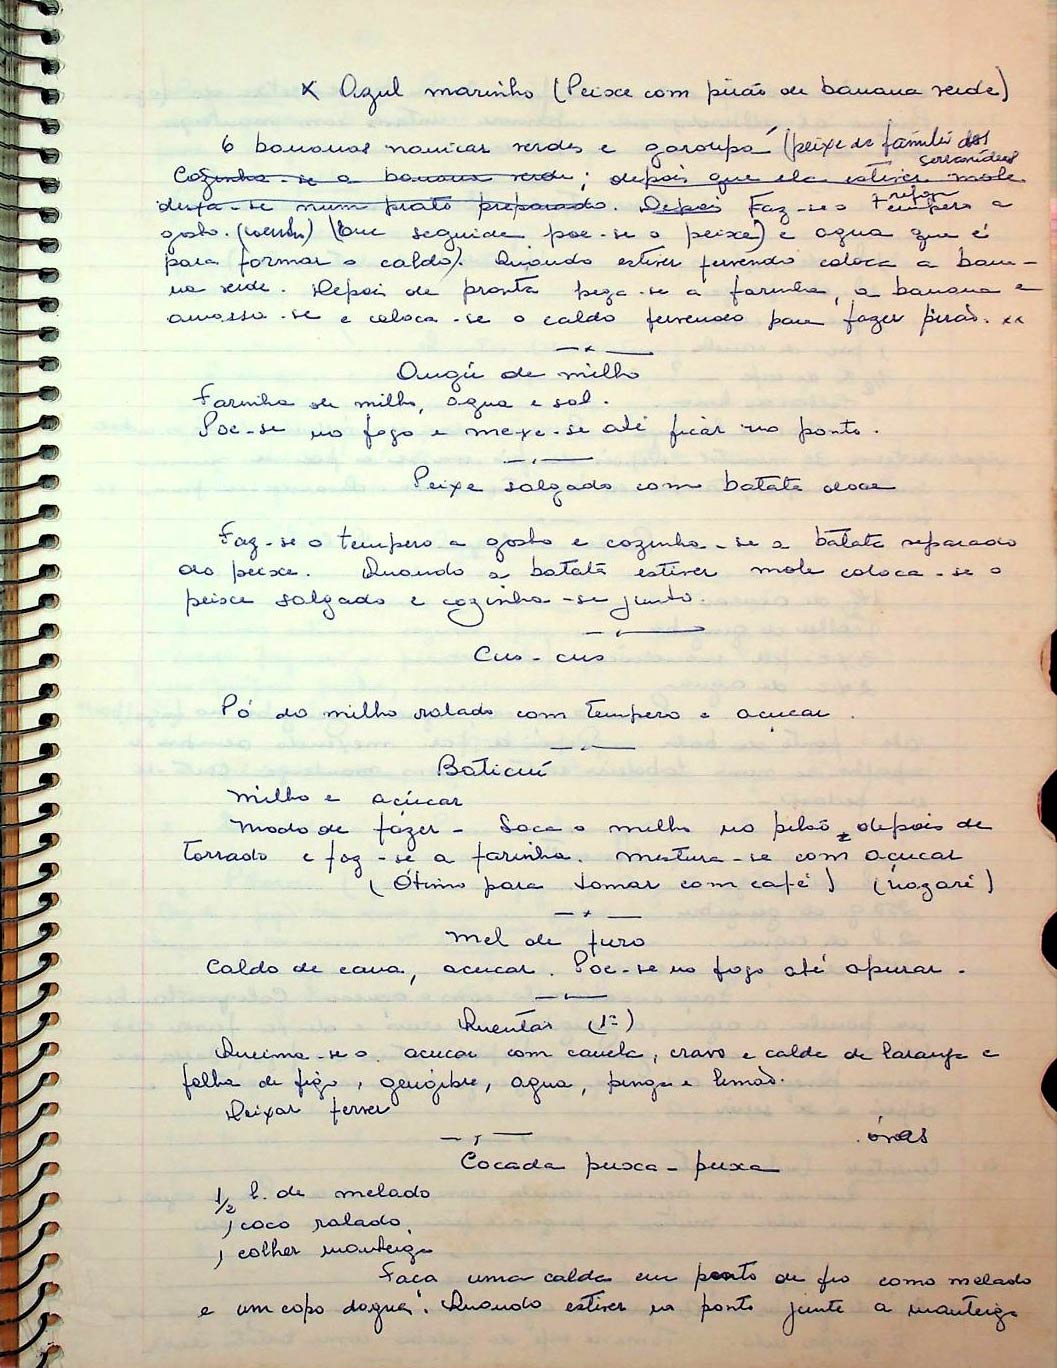 x Azul marinho (Peixe com pirão de banana verde)
6 bananas nanicas verdes e garoupa (peixe da família dos
serranídeos
Cozinha-se a banana verde; depois que ela estiver mole
deixa-se num prato preparado. Depois Faz-se o tempero a
gosto. (coentro) (em seguida poe-se o peixe) e agua que é
para formar o caldo). Quando estiver fervendo coloca a bana-
na verde. Depois de pronta pega-se a farinha, a banana e
amassa-se e coloca-se o caldo fervendo para fazer pirão. xx
Angú de milho
Farinha de milho, agua e sal.
Poe-se no fogo e mexe-se até ficar no ponto.
Peixe salgado com batata doce
Faz-se o tempero a gosto e cozinha-se a batata separado
do peixe. Quando a batata estiver mole coloca-se o
peixe salgado e cozinha-se junto.
Cus-cus
Pó do milho ralado com tempero e açucar.
Baticuí
Milho e açúcar
Modo de fazer - Soca o milho no pilão, depois de
torrado e faz-se a farinha. Mistura-se com açucar
(Ótimo para tomar com café) (Nazaré)
Mel de furo
Caldo de cana, acucar. Poe-se no fogo até apurar.
Quentão (1º)
Queima-se o acucar com canela, cravo e calda de laranja e
folha de figo, gengibre, agua, pinga e limão.
Deixar ferver
Cocada puxa-puxa
1/2 l. de melado
1 coco ralado
1 colher manteiga
Faça uma calda em ponto de fio como melado
e um copo dagua. Quando estiver no ponto junte a manteiga